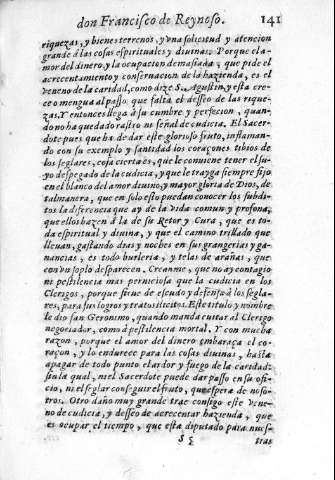 don Francisco de Reynoso. 141
riquezas, y bienes terrenos, y vna solicitud y atencion
grande à las cosas espirituales y diuinas: Porque el a-
mor del dinero, y la ocupacion demasiada, que pide el
acrecentamiento y conseruacion de la hazienda, es el
veneno de la caridad, como dize S. Agustin, y esta cre-
ce o mengua al passo que falta el desseo de las rique-
zas. Y entonces llega à su cumbre y perfecion, quan-
do no ha quedado rastro ni señal de cudicia. El Sacer-
dote pues que ha de dar este glorioso fruto, inflaman-
do con su exemplo y santidad los coraçones tibios de
los seglares, cosa cierta es, que le conuiene tener el su-
yo despegado de la cudicia, y que le trayga siempre fijo
en el blanco del amor diuino, y mayor gloria de Dios, de
tal manera, que en solo esto puedan conocer los subdi-
tos la diferencia que ay de la vida comun y profana,
que ellos hazen à la de su Retor y Cura, que es to-
da espiritual y diuina, y que el camino trillado que
lleuan, gastando dias y noches en sus grangerias y ga-
nancias, es todo burleria, y telas de arañas, que
con vn soplo desparecen. Creanme, que no ay contagio
ni pestilencia mas perniciosa que la cudicia en los
Clerigos, porque sirue de escudo y defensa à los segla-
res, para sus logros y tratos ilicitos. Este titulo y nombre
le dio san Geronimo, quando manda euitar al Clerigo
negociador, como à pestilencia mortal. Y con mucha
razon, porque el amor del dinero embaraça el co-
raçon, y lo endurece para las cosas diuinas, hasta
apagar de todo punto el ardor y fuego de la caridad:
sin la qual, ni el Sacerdote puede dar passo en su ofi-
cio, ni el seglar conseguir el fruto, que espera de noso-
tros. Otro daño muy grande trae consigo este vene-
no de cudicia, y desseo de acrecentar hazienda, que
es ocupar el tiempo, que esta diputado para nues-
S 5 tras